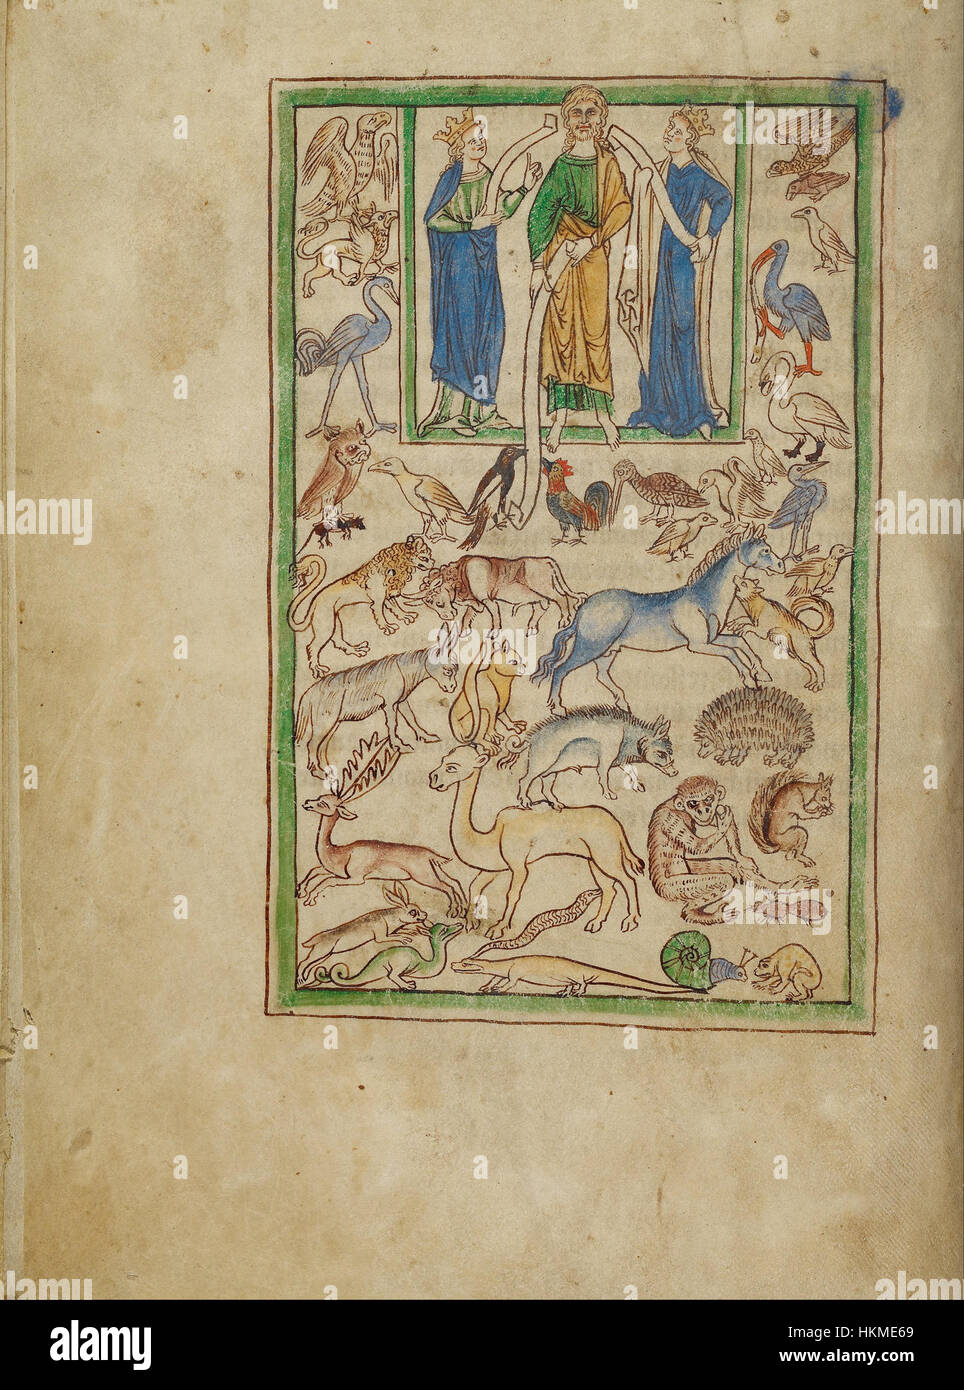 alamy
Image ID: HKME69
www.alamy.com